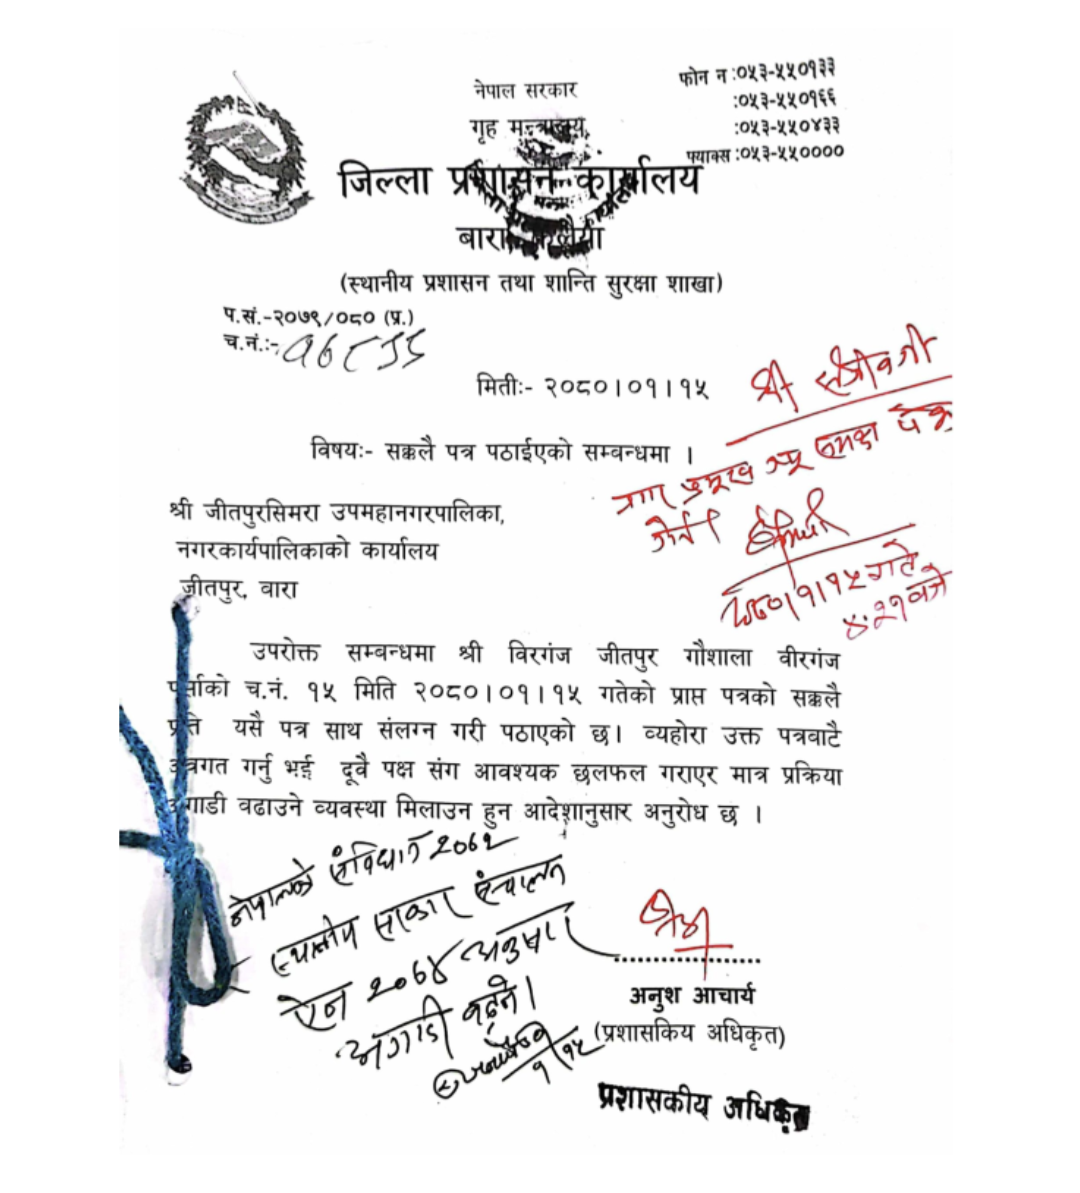 नेपाल सरकार
गृह मन्त्रालय
फोन न :०५३-५५०१३३
:०५३-५५०१६६
:०५३-५५०४३३
फ्याक्स :०५३-५५००००
जिल्ला प्रशासन कार्यालय
बारा कलैया
(स्थानीय प्रशासन तथा शान्ति सुरक्षा शाखा)
प.सं.-२०७९/०८० (प्र.)
च.नं.:-
मितीः- २०८०।०१।१५
श्री
विषयः- सक्कलै पत्र पठाईएको सम्बन्धमा ।
नगर प्रमुख ज्यू समक्ष पेश
श्री जीतपुरसिमरा उपमहानगरपालिका,
नगरकार्यपालिकाको कार्यालय
जीतपुर, बारा
२०८०।१।१५ गते
४:२१ बजे
उपरोक्त सम्बन्धमा श्री विरगंज जीतपुर गौशाला वीरगंज
पर्साको च.नं. १५ मिति २०८०।०१।१५ गतेको प्राप्त पत्रको सक्कलै
प्रति यसै पत्र साथ संलग्न गरी पठाएको छ। व्यहोरा उक्त पत्रबाटै
अवगत गर्नु भई दूवै पक्ष संग आवश्यक छलफल गराएर मात्र प्रक्रिया
अगाडी वढाउने व्यवस्था मिलाउन हुन आदेशानुसार अनुरोध छ ।
नेपालको संविधान २०७२
स्थानीय सरकार संचालन
ऐन २०७४ अनुसार
अगाडी बढ्ने।
१/१५
अनुश आचार्य
(प्रशासकिय अधिकृत)
प्रशासकीय अधिकृत